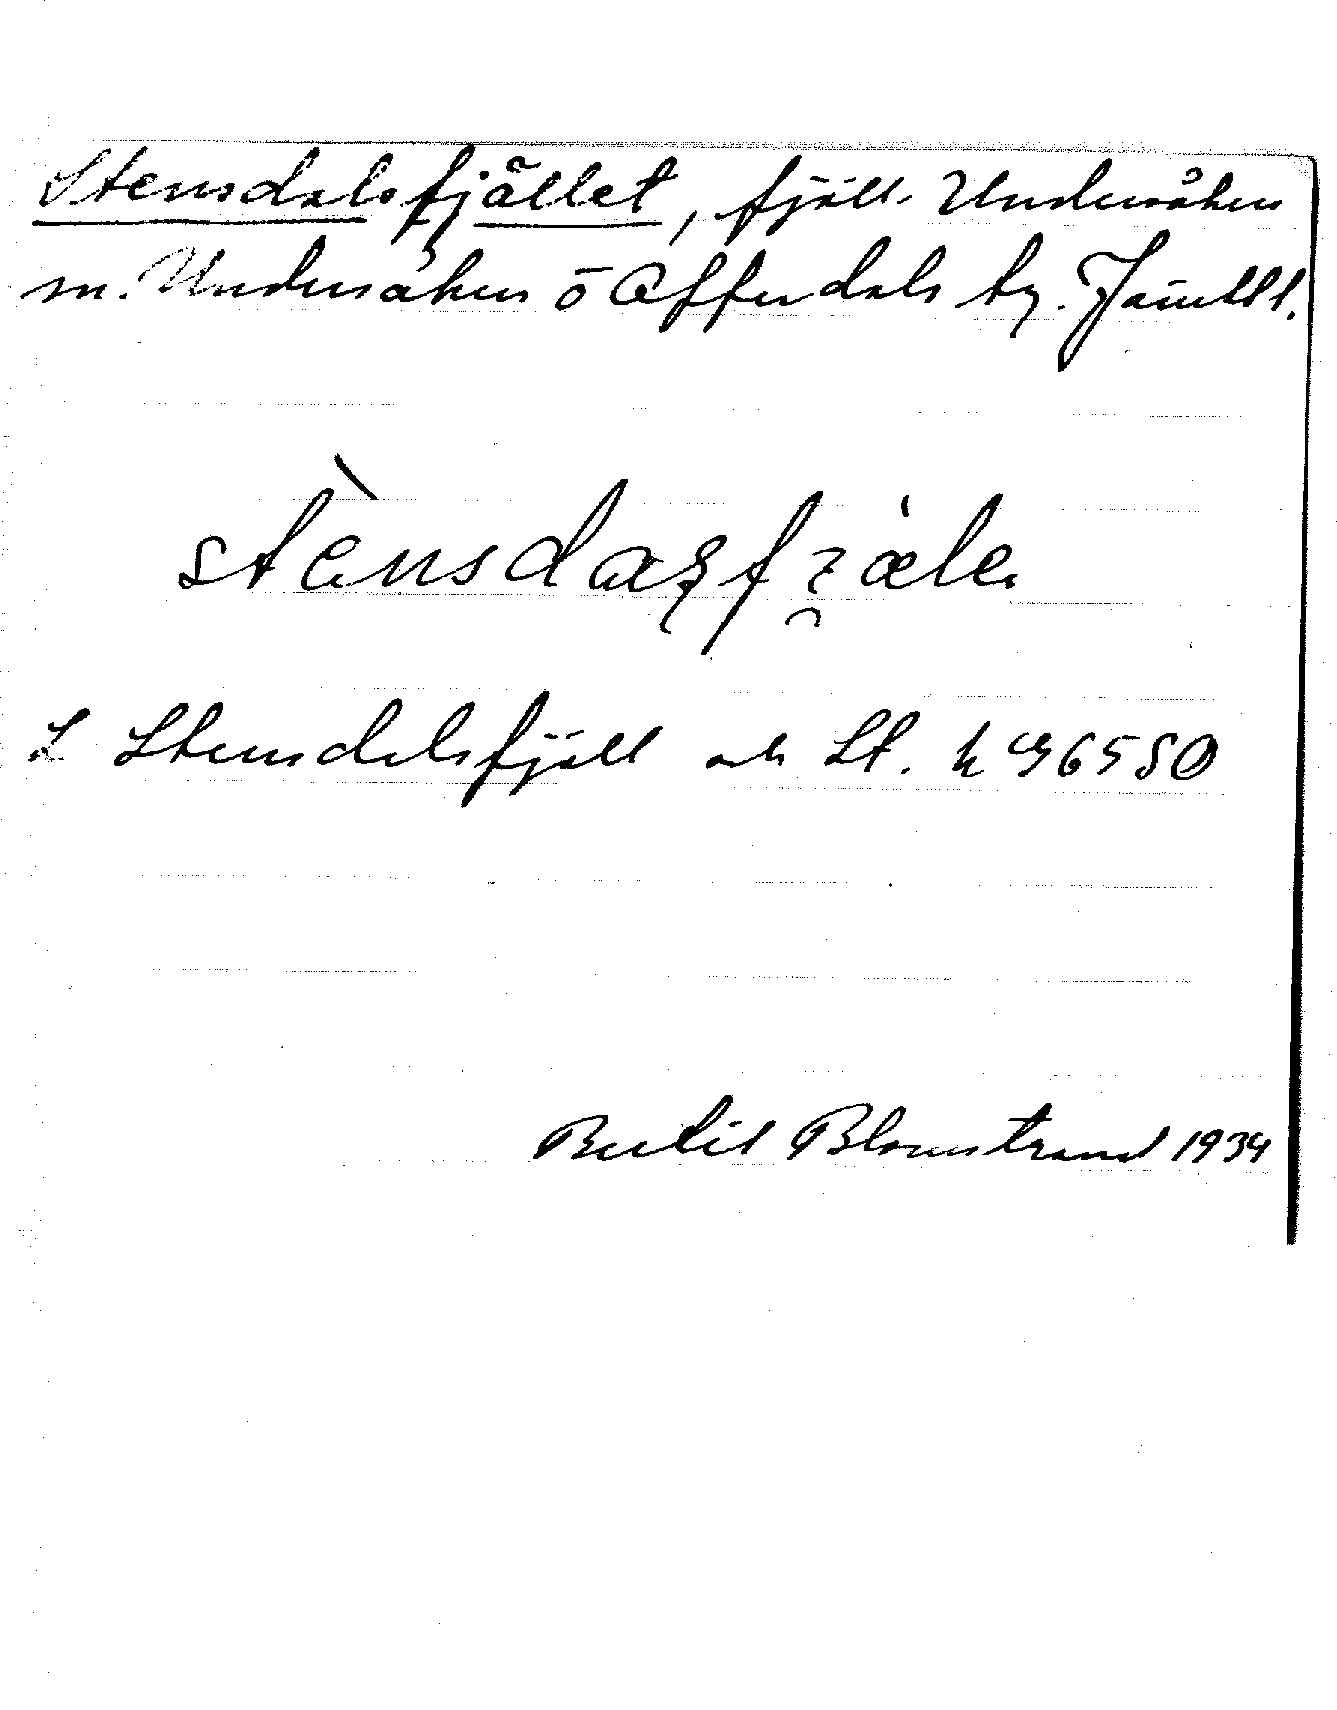 Stensdalsfjället, fjäll. Undersåkers
sn. Undersåkers o Offerdals tg. Jämtl l.
stènsdaʂfjæ̀le.
L Stensdalsfjäll och St. h
Bertil Blomstrand 1934